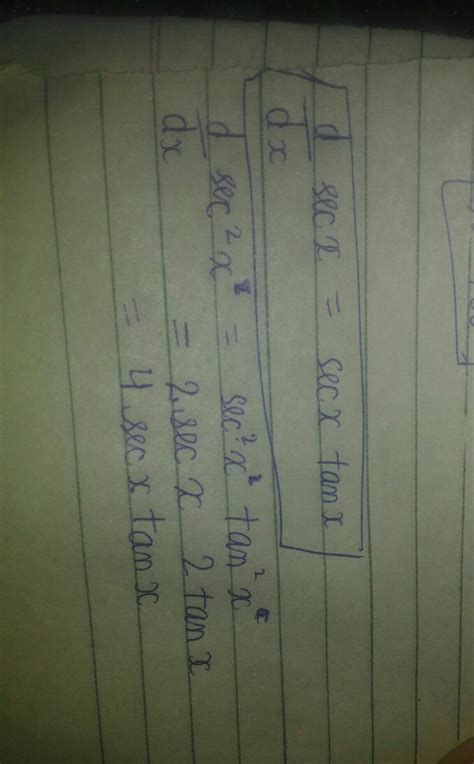 d/dx sec x = sec x tan x
d/dx sec² x² = sec² x² tan² x²
= 2.sec x 2 tan x
= 4.sec x tan x